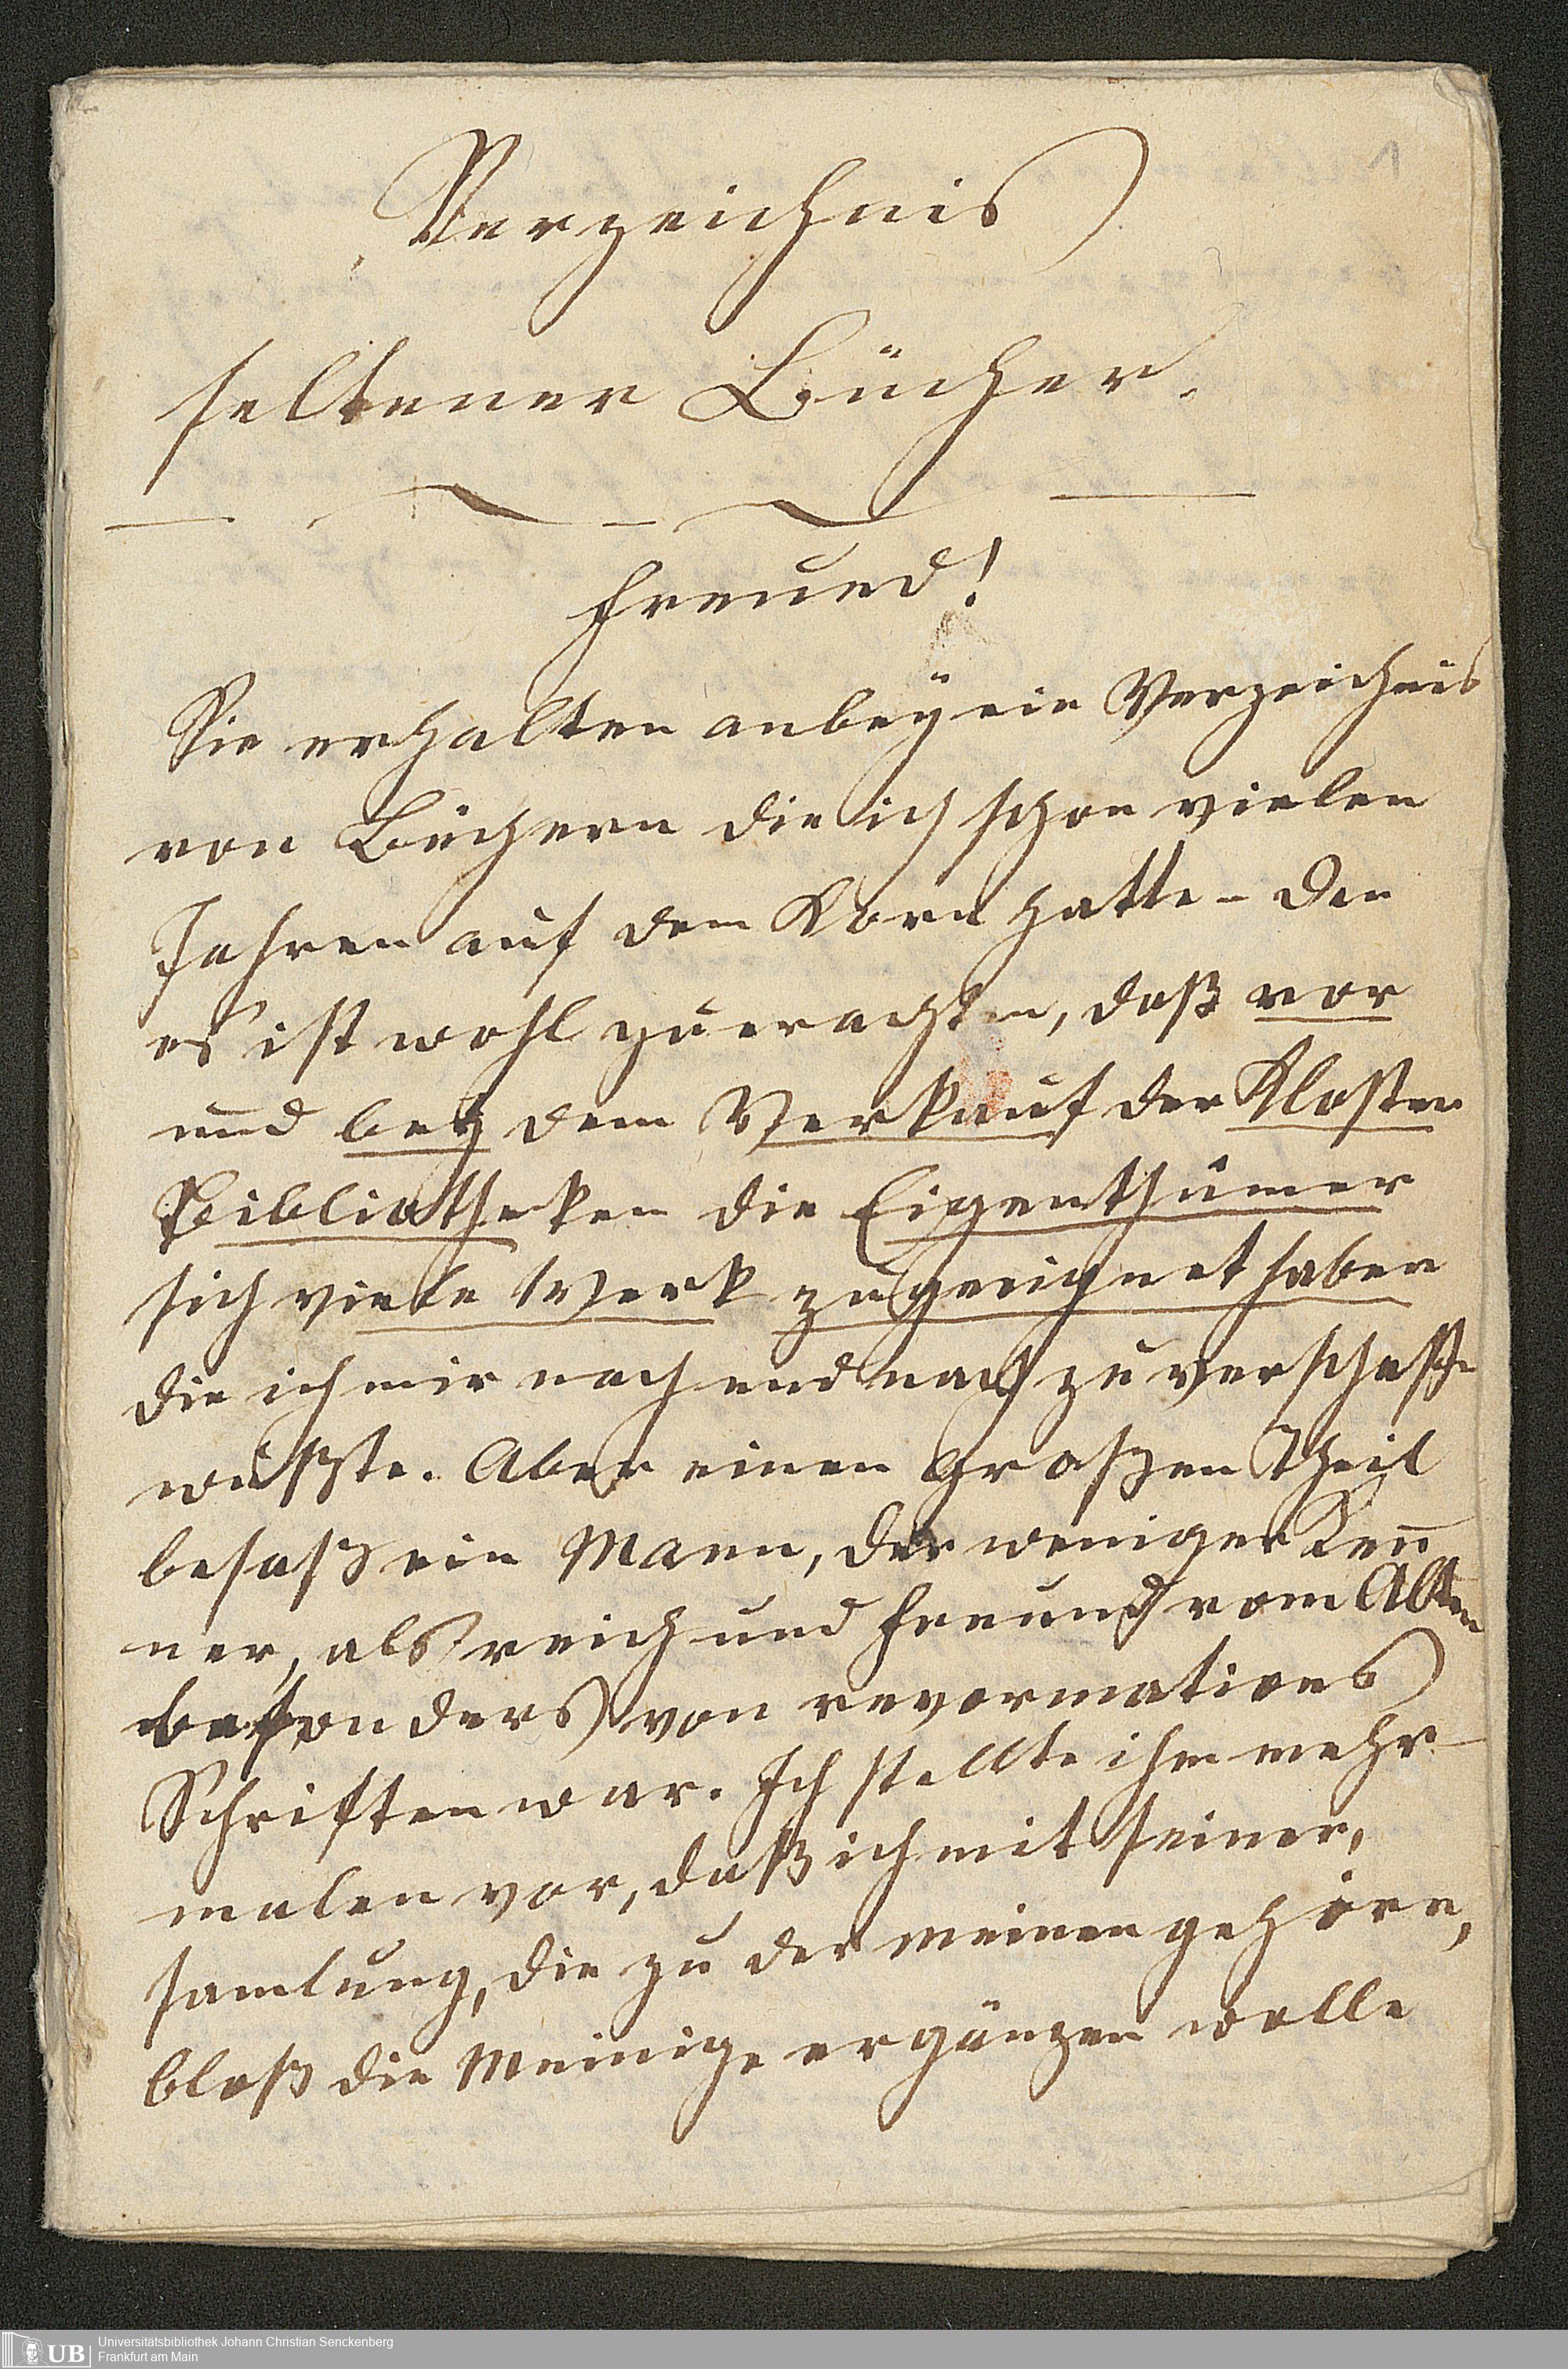 1
Verzeichnis
seltener Bücher.
Freund!
Sie erhalten anbeÿ ein Verzeichnis
von Büchern die ich schon vielen
Jahren auf dem Korn hatte - Den
es ist wohl zu erachten, daß vor
und beÿ dem Verkauf der Kloster
Bibliotheken die Eigenthümer
sich viele Werk zugeeignet haben
die ich mir nach und nach zu verschaffen
wußte. Aber einen großen Theil
besaß ein Mann, der weniger Ken̄
ner, als reich und Freund vom Alten
besonders von revormations
Schriften war. Ich stellte ihm mehr
malen vor, daß ich mit seiner,
samlung, die zu der meinen gehören,
bloß die Meinige ergänzen wolle
UB
Universitätsbibliothek Johann Christian Senckenberg
Frankfurt am Main